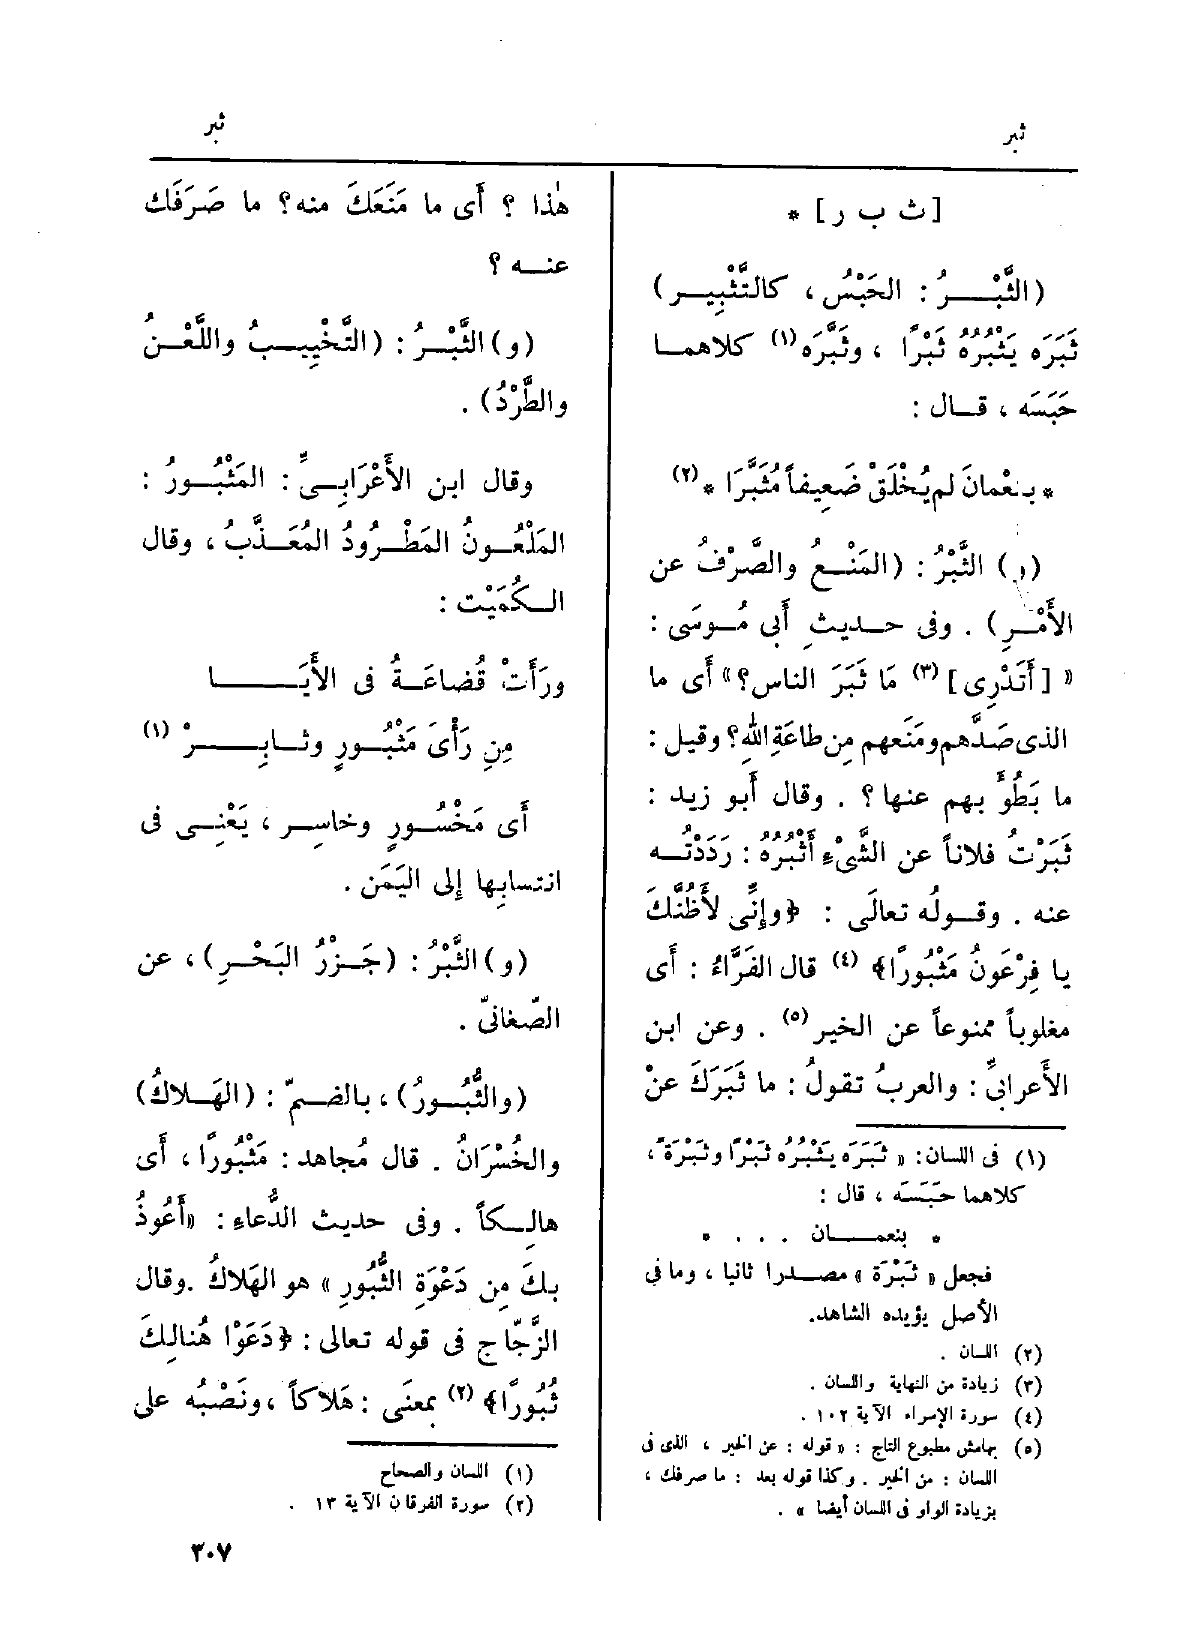 ثبر
ثبر
[ ث ب ر ] *
(الثَّبْــرُ : الحَبْسُ ، كالتَّثْبِيــر)
ثَبَرَه يَثْبُرُهُ ثَبْرًا ، وثَبَّرَه (١) كلاهمــا
حَبَسَه ، قــال :
* بنَعْمانَ لم يُخْلَقْ ضَعِيفاً مُثَبَّرَا * (٢)
(و) الثَّبْرُ : (المَنْـعُ والصَّرْفُ عن
الأَمْـرِ) . وفى حـديثِ أَبى مُـوسَى :
« [أَتَدْرِى] (٣) مَا ثَبَرَ الناس؟» أَى ما
الذى صَدَّهم ومَنَعهم مِن طاعَةِ اللهِ؟ وقيل :
ما بَطُؤَ بهم عنها ؟ . وقال أَبو زيد :
ثَبَرْتُ فلاناً عن الشَّىْءِ أَثْبُرُهُ : رَدَدْتُــه
عنه . وقــولُه تعالَى : ﴿وإِنِّى لأَظُنُّكَ
يا فِرْعَونُ مَثْبُورًا﴾ (٤) قال الفَرَّاءُ : أَى
مغلوباً ممنوعاً عن الخير (٥) . وعن ابن
الأَعرابىِّ : والعربُ تقولُ : ما ثَبَرَكَ عنْ
(١) فى اللسان: « ثَبَرَه يَثْبُرُه ثَبْرًا وثَبْرَةً ،
كلاهما حَبَسَه ، قال :
* بنعمــان . . . *
فجعل « ثَبْرَة » مصـدرا ثانيا ، وما فى
الأصل يؤيده الشاهد.
(٢) اللسان .
(٣) زيادة من النهاية واللسان .
(٤) سورة الإسراء الآية ١٠٢ .
(٥) بهامش مطبوع التاج : « قوله : عن الخير ، الذى فى
اللسان : من الخير . وكذا قوله بعد : ما صرفك ،
بزيادة الواو فى اللسان أيضا » .
هٰذا ؟ أَى ما مَنَعَكَ منه؟ ما صَرَفَك
عنــه ؟
(و) الثَّبْــرُ : (التَّخْيِيــبُ واللَّعْــنُ
والطَّرْدُ) .
وقال ابن الأَعْرَابِــىِّ : المَثْبُــورُ :
المَلْعُــونُ المَطْــرودُ المُعَــذَّبُ ، وقال
الــكُمَيْت :
ورَأَتْ قُضاعَــةُ فى الأَيَــا
مِنِ رَأْىَ مَثْبُــورٍ وثــابِــرْ (١)
أَى مَخْســورٍ وخاسِر ، يَعْنِــى فى
انتسابِها إِلى اليَمَن .
(و) الثَّبْرُ : (جَــزْرُ البَحْــرِ) ، عن
الصّغانىّ .
(والثُّبُــورُ) ، بالضــمّ : (الهَــلاكُ)
والخُسْرَانُ . قال مُجاهد : مَثْبُورًا ، أَى
هالِــكاً . وفى حديث الدُّعاءِ : «أَعُوذُ
بِكَ مِن دَعْوَةِ الثُّبُورِ» هو الهَلاكُ . وقال
الزَّجّاج فى قوله تعالى : ﴿دَعَوْا هُنالِكَ
ثُبُورًا﴾ (٢) بمعنَى : هَلاكاً ، ونَصْبُه على
(١) اللسان والصحاح
(٢) سورة الفرقان الآية ١٣ .
٣٠٧